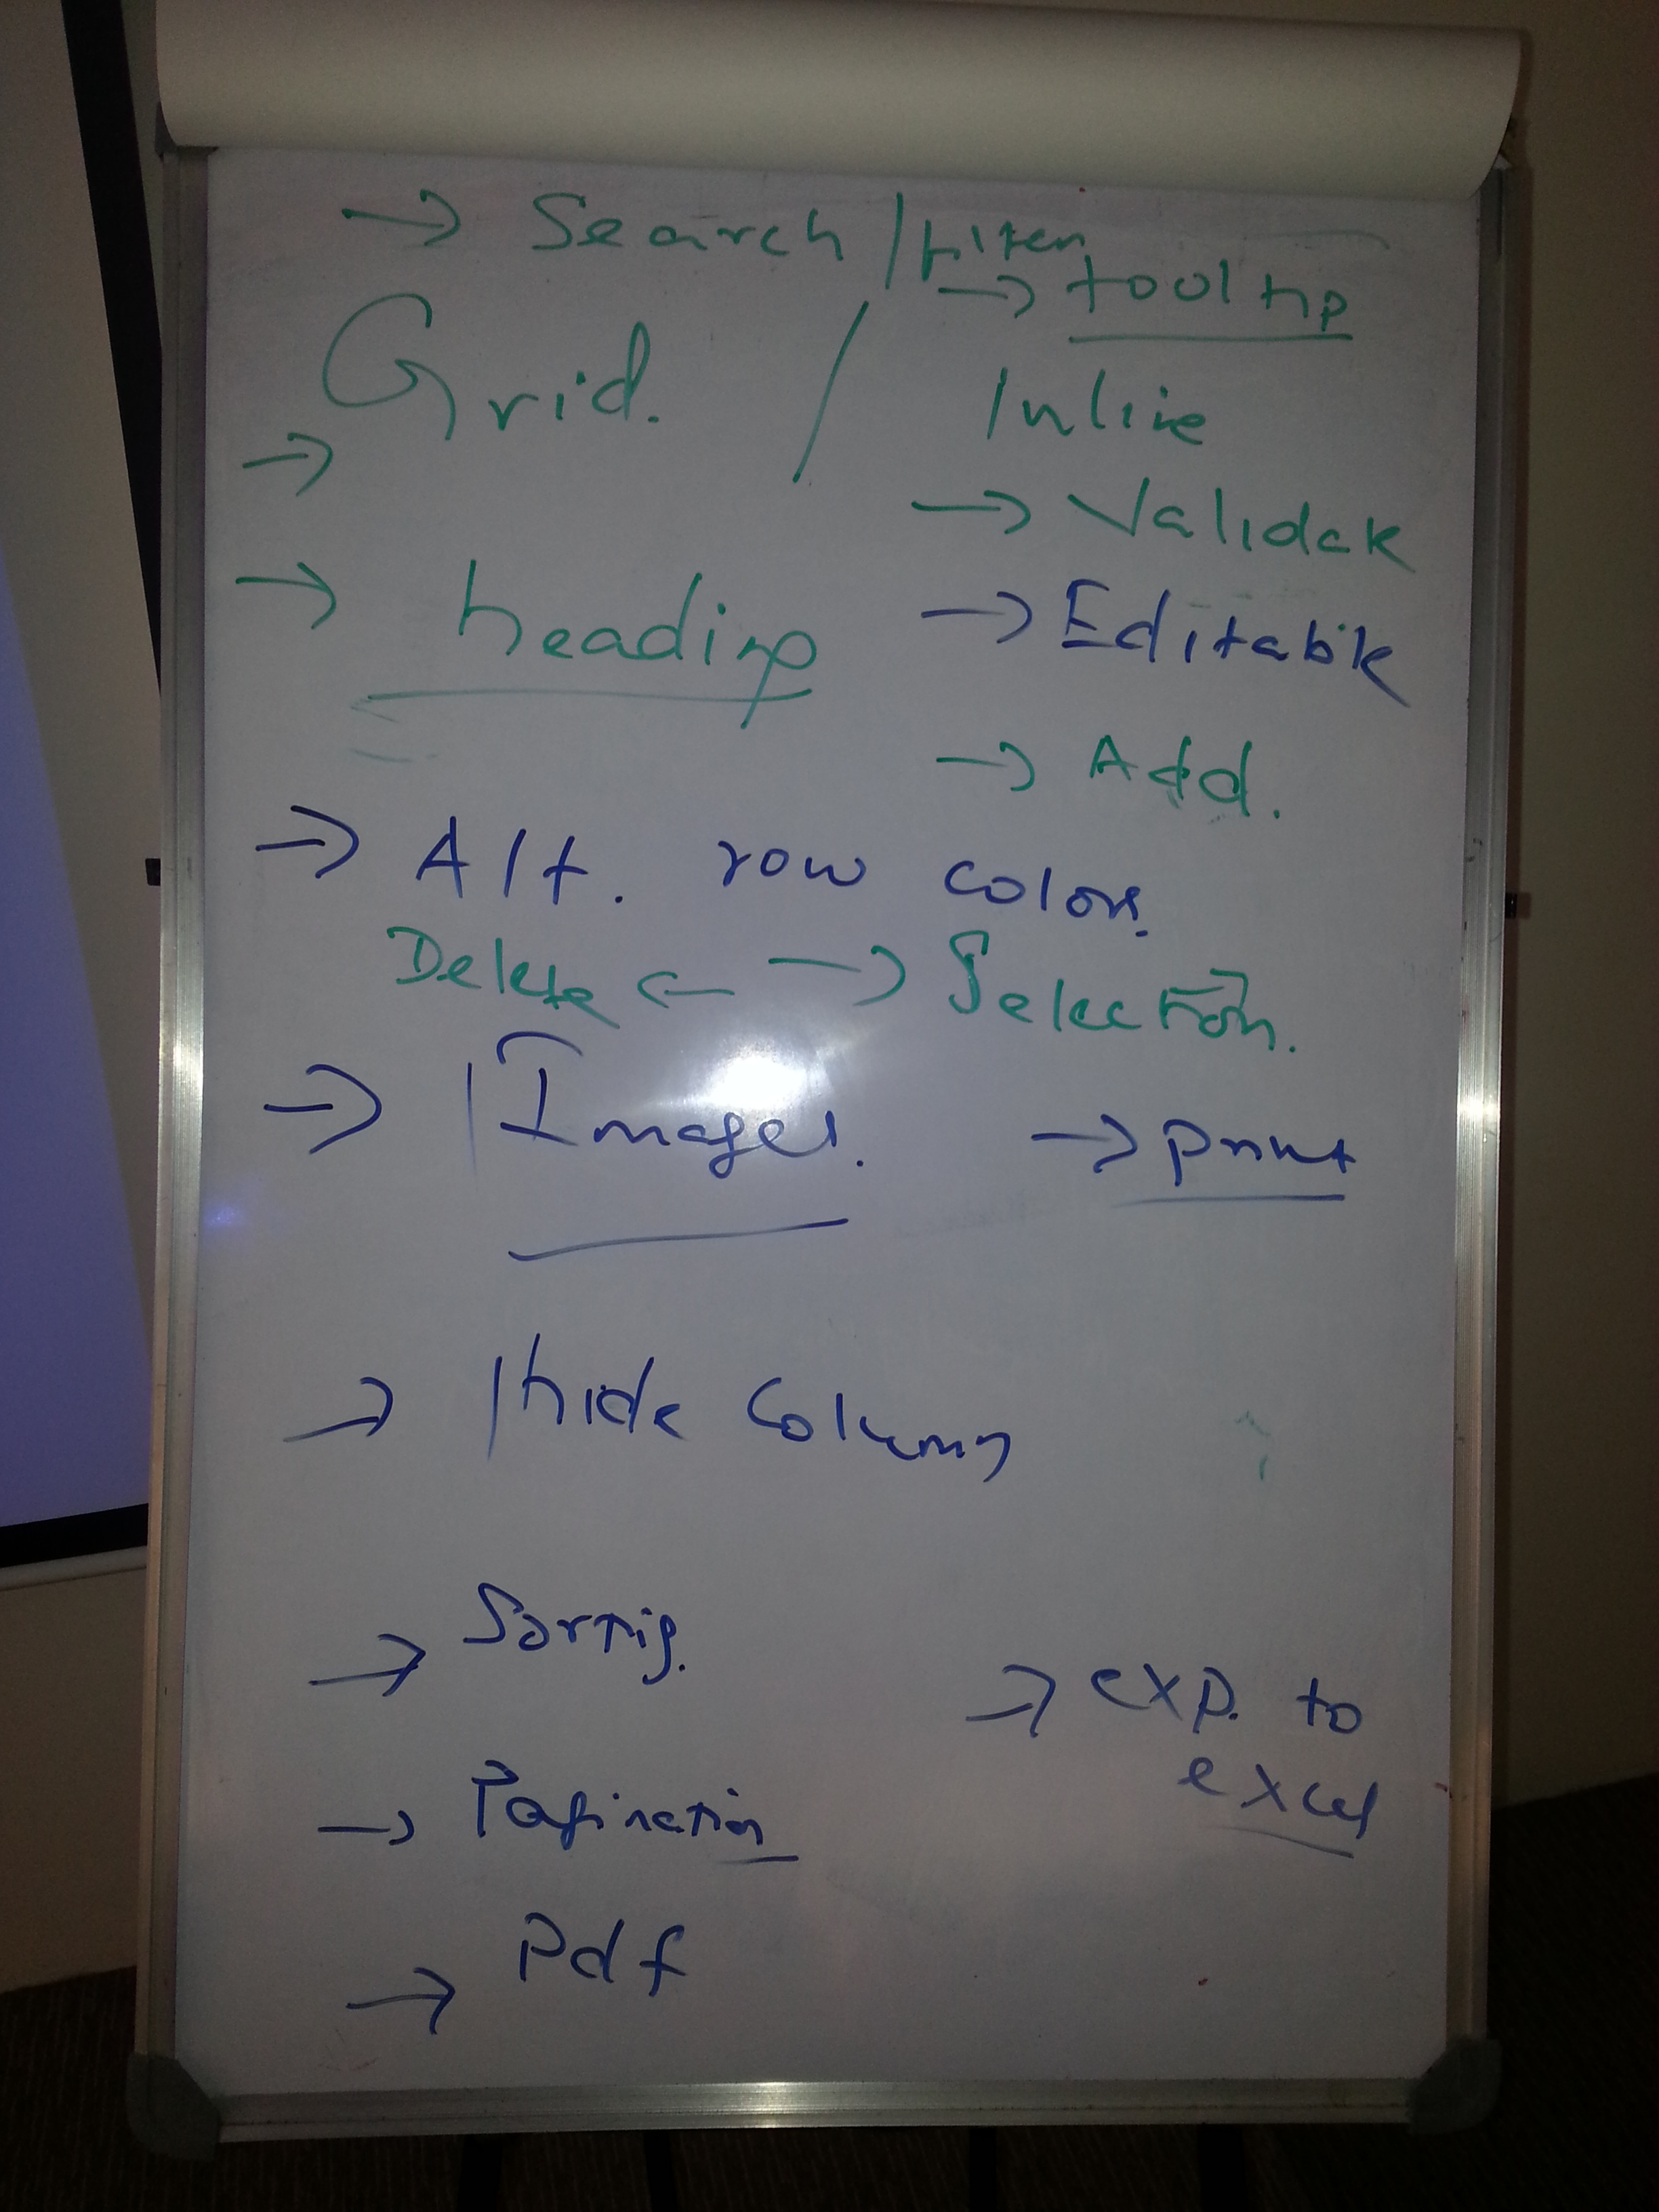 → Search / Filter
→ tooltip
→ Grid. / Inline
→ heading → Validate
→ Editable
→ Add.
→ Alt. row colors
Delete ← → Selection.
→ Images. → Print
→ hide Columns
→ Sorting. → exp. to excel
→ Pagination
→ Pdf